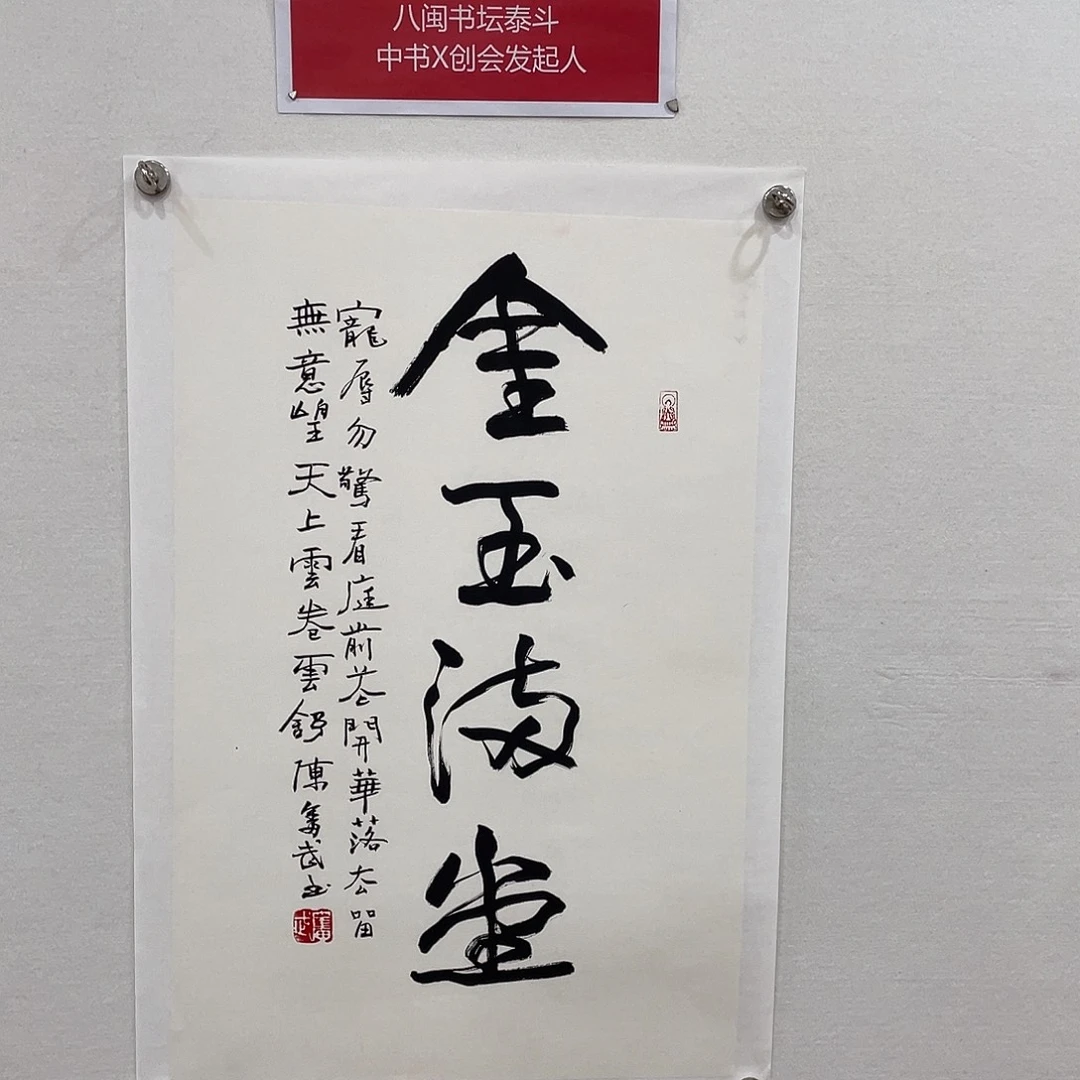 八闽书坛泰斗
中书X创会发起人
金玉满堂
寵辱勿驚看庭前花開華落去留
無意望天上雲卷雲舒陳奮武书